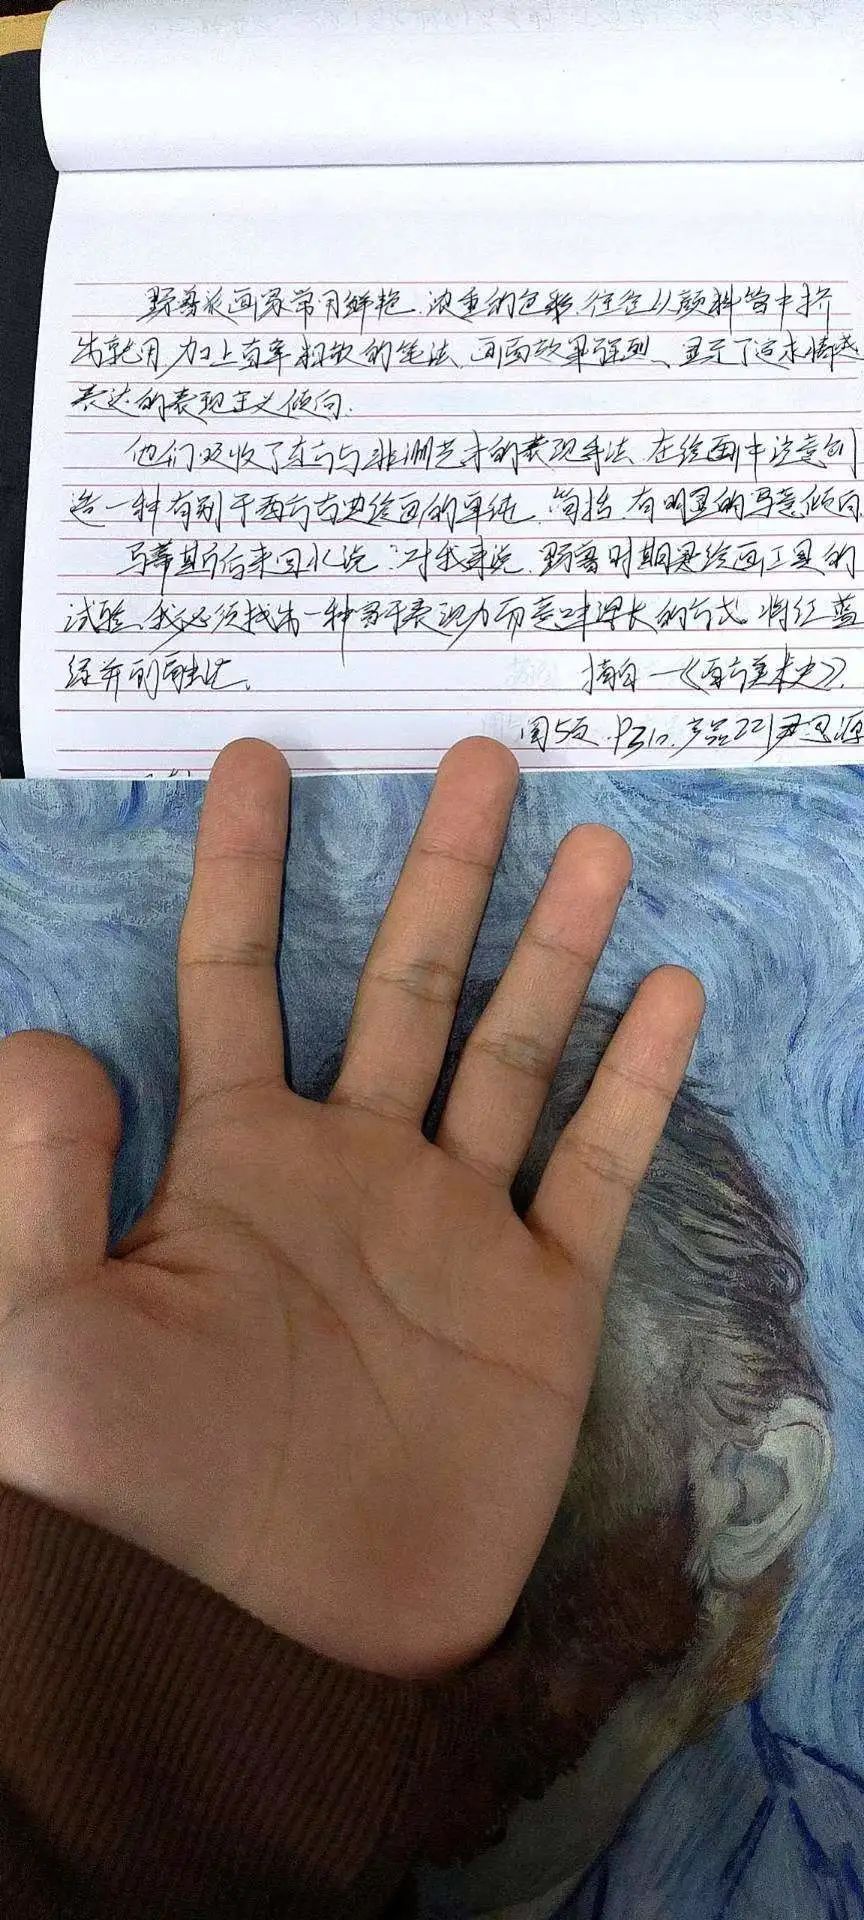 野兽派画家常用鲜艳、浓重的色彩,往往从颜料管中挤
出就用,加上直率粗放的笔法,画面效果强烈、显示了追求情感
表达的表现主义倾向.
他们吸收了东方与非洲艺术的表现手法,在绘画中注意创
造一种有别于西方古典绘画的单纯、简括,有明显的写意倾向
马蒂斯后来回忆说:对我来说,野兽时期是绘画工具的
试验,我必须找出一种富于表现力而意味深长的方式,将红蓝
绿并列融汇. 摘自—《西方美术史》.
图5页.P310.产品221尹思源